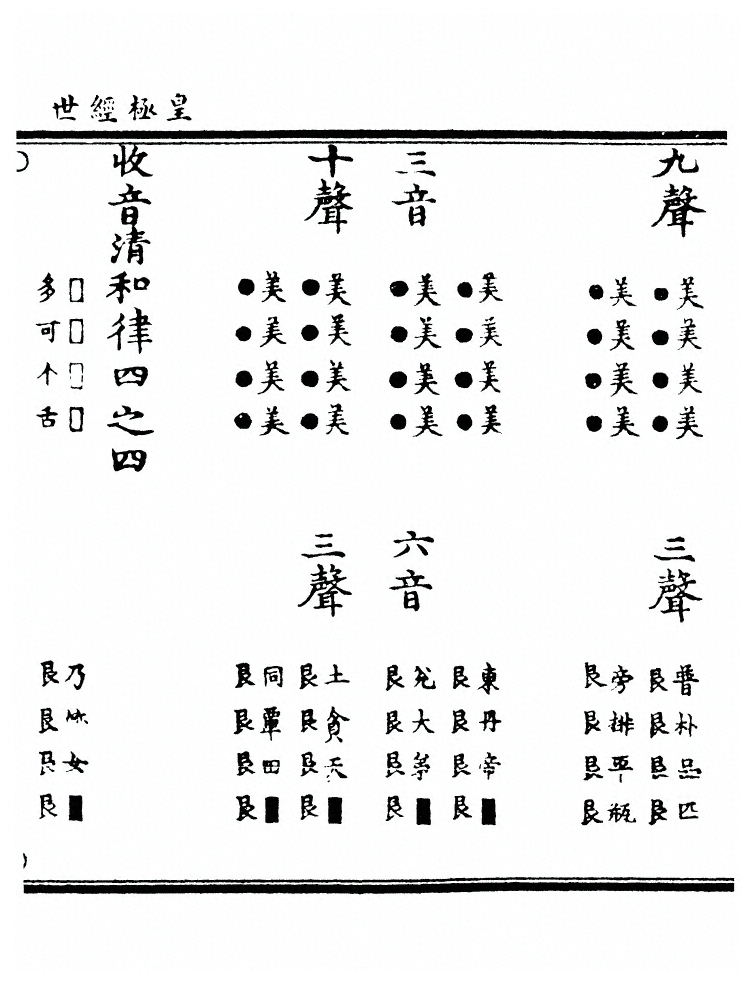 皇極經世
九聲
美美美美
●●●●
美美美美
●●●●
三音
美美美美
●●●●
美美美美
●●●●
十聲
美美美美
●●●●
美美美美
●●●●
收音清和律四之四
□□□□
多可个舌
三聲
普朴品匹
艮艮艮艮
旁排平瓶
艮艮艮艮
六音
東丹帝■
艮艮艮艮
兌大第■
艮艮艮艮
三聲
土貪天■
艮艮艮艮
同覃田■
艮艮艮艮
乃妳女■
艮艮艮艮